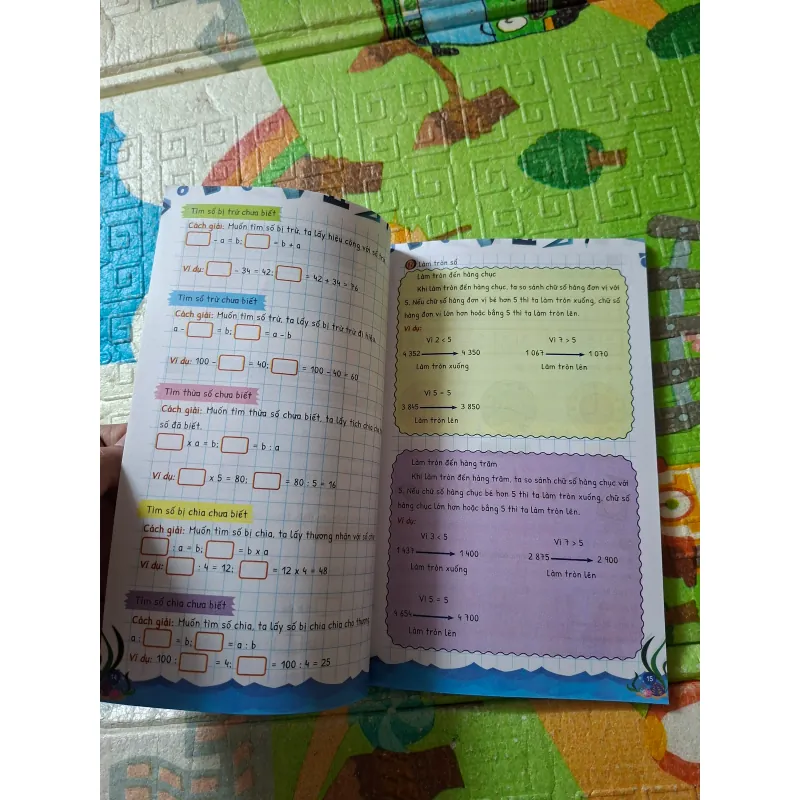 Tìm số bị trừ chưa biết
Cách giải: Muốn tìm số bị trừ, ta lấy hiệu cộng với số trừ.
- a = b; = b + a
Ví dụ: - 34 = 42; = 42 + 34 = 76
Tìm số trừ chưa biết
Cách giải: Muốn tìm số trừ, ta lấy số bị trừ trừ đi hiệu.
a - = b; = a - b
Ví dụ: 100 - = 40; = 100 - 40 = 60
Tìm thừa số chưa biết
Cách giải: Muốn tìm thừa số chưa biết, ta lấy tích chia cho
số đã biết.
x a = b; = b : a
Ví dụ: x 5 = 80; = 80 : 5 = 16
Tìm số bị chia chưa biết
Cách giải: Muốn tìm số bị chia, ta lấy thương nhân với số chia.
: a = b; = b x a
Ví dụ: : 4 = 12; = 12 x 4 = 48
Tìm số chia chưa biết
Cách giải: Muốn tìm số chia, ta lấy số bị chia chia cho thương.
a : = b; = a : b
Ví dụ: 100 : = 4; = 100 : 4 = 25
14
Làm tròn số
Làm tròn đến hàng chục
Khi làm tròn đến hàng chục, ta so sánh chữ số hàng đơn vị với
5. Nếu chữ số hàng đơn vị bé hơn 5 thì ta làm tròn xuống, chữ số
hàng đơn vị lớn hơn hoặc bằng 5 thì ta làm tròn lên.
Ví dụ:
Vì 2 < 5 Vì 7 > 5
4 352 4 350 1 067 1 070
Làm tròn xuống Làm tròn lên
Vì 5 = 5
3 845 3 850
Làm tròn lên
Làm tròn đến hàng trăm
Khi làm tròn đến hàng trăm, ta so sánh chữ số hàng chục với
5. Nếu chữ số hàng chục bé hơn 5 thì ta làm tròn xuống, chữ số
hàng chục lớn hơn hoặc bằng 5 thì ta làm tròn lên.
Ví dụ:
Vì 3 < 5 Vì 7 > 5
1 437 1 400 2 875 2 900
Làm tròn xuống Làm tròn lên
Vì 5 = 5
4 654 4 700
Làm tròn lên
15